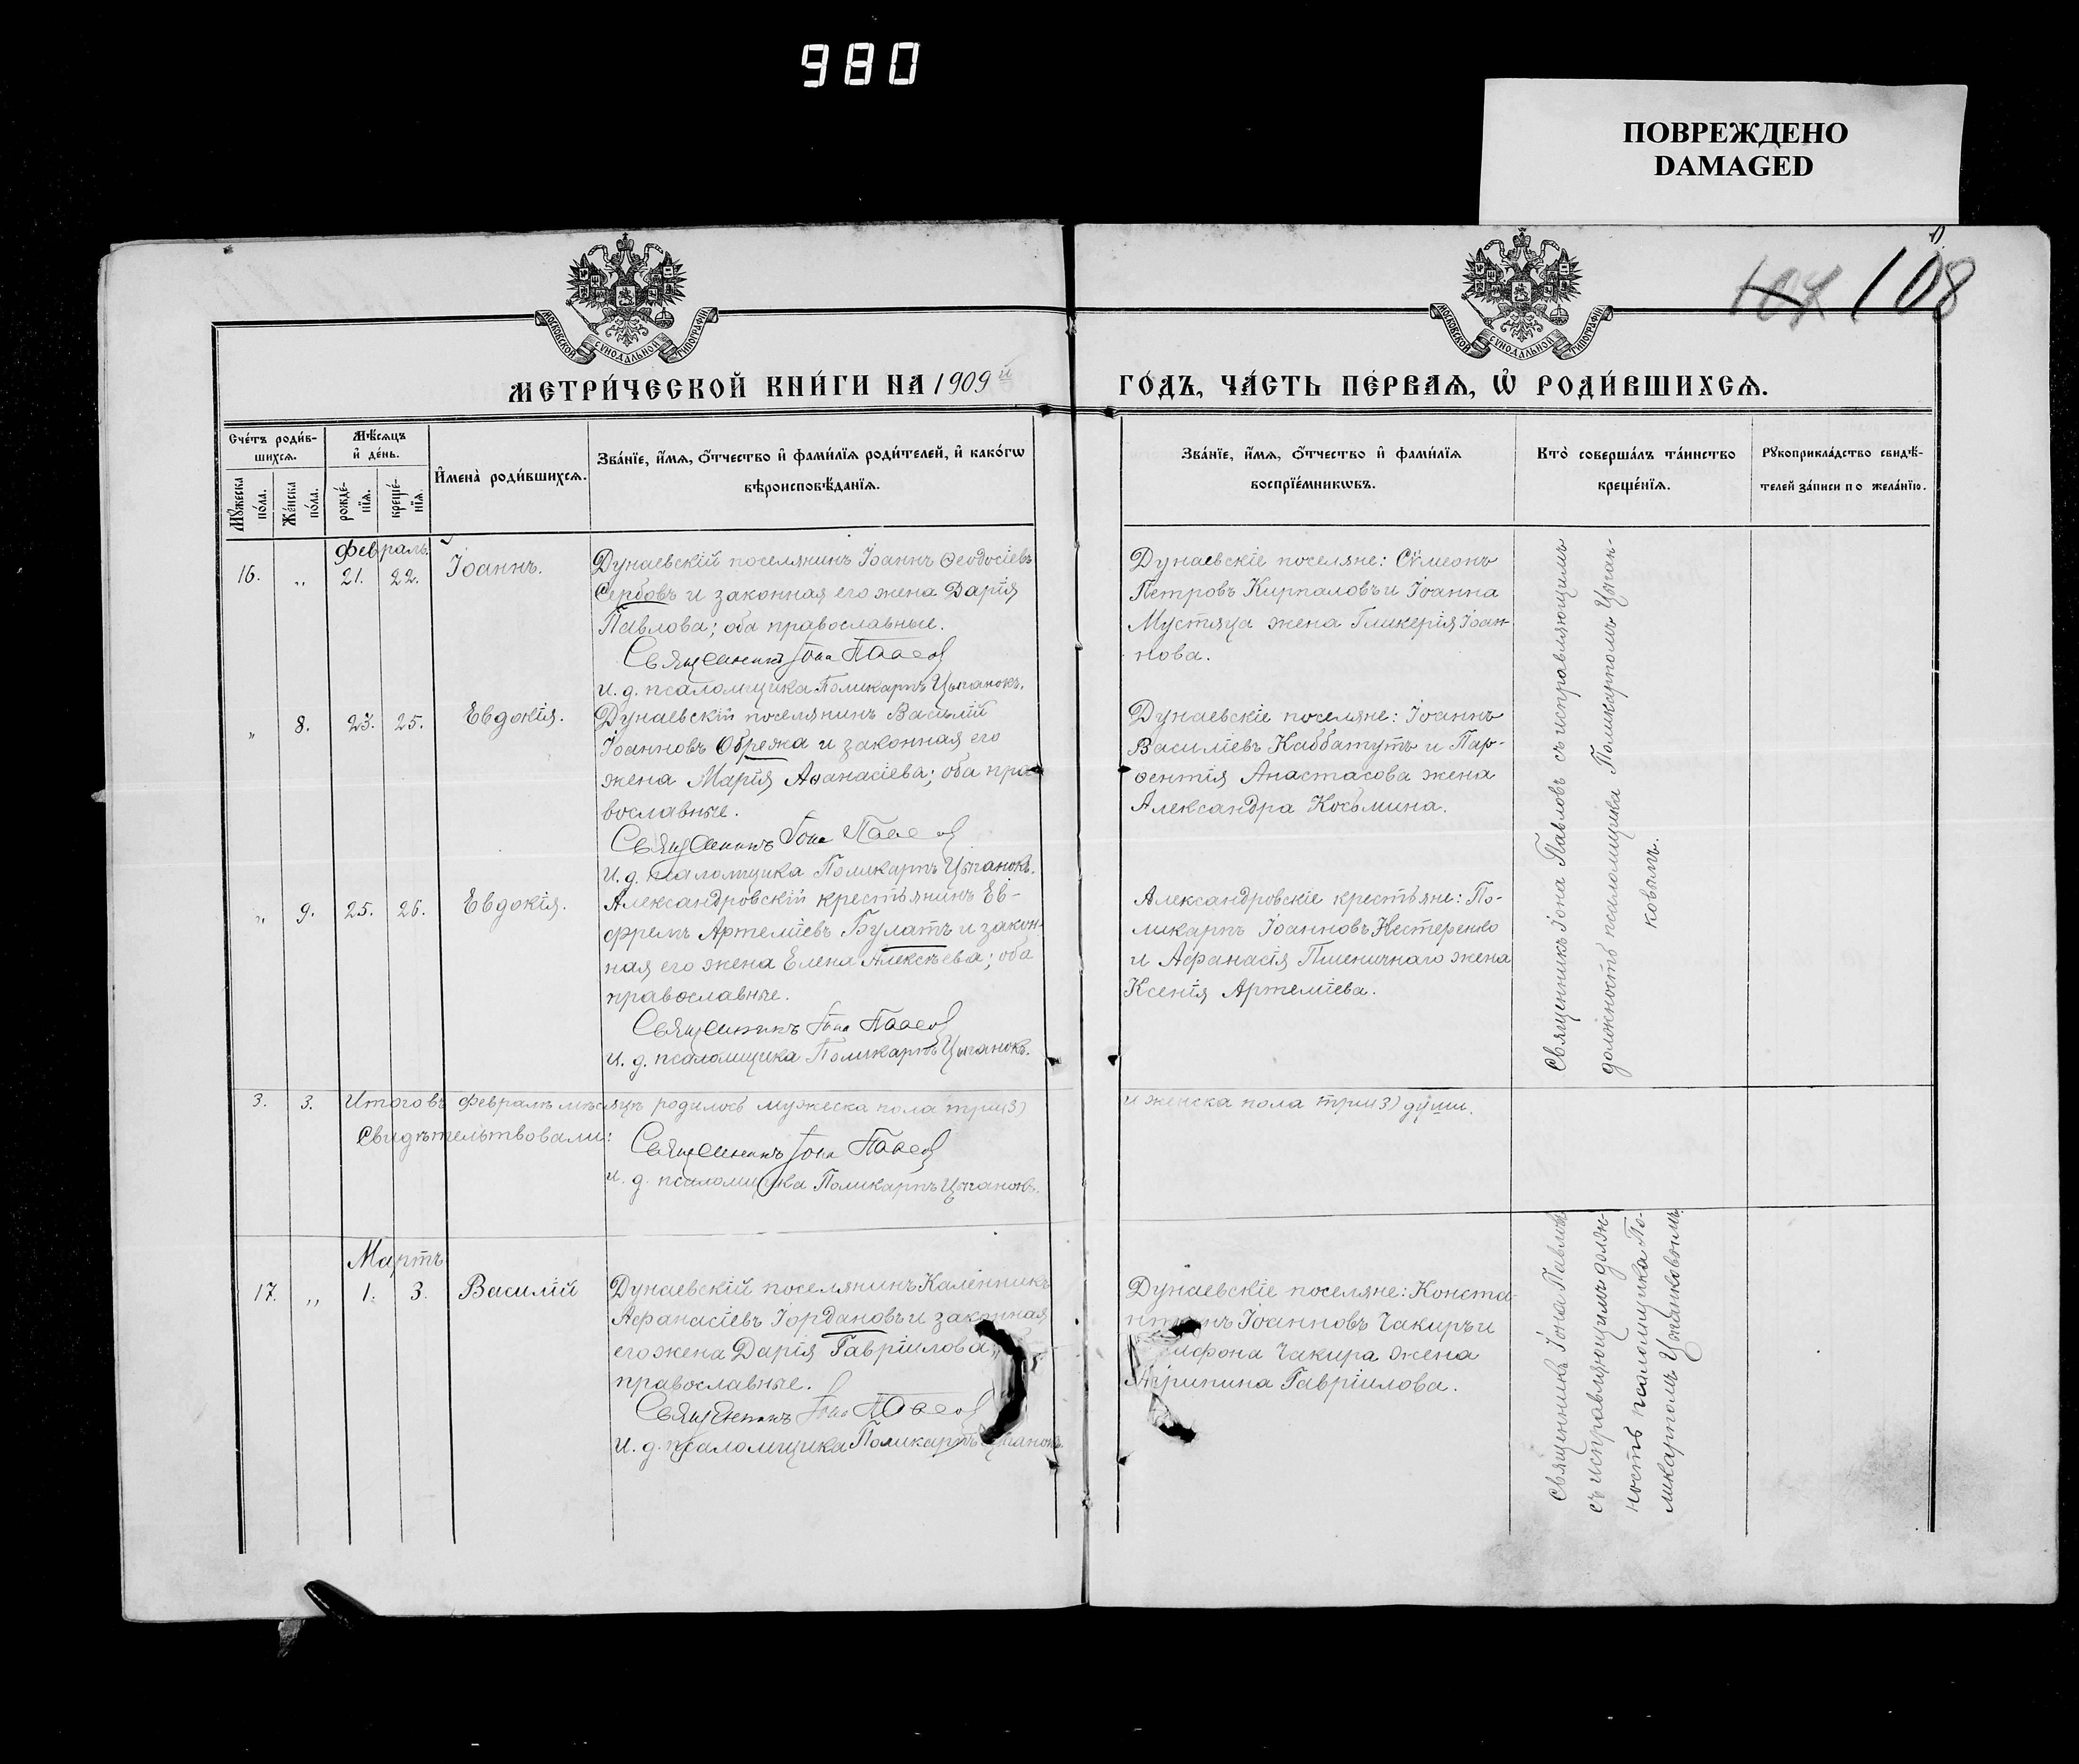 980
ПОВРЕЖДЕНО
DAMAGED
108
МОСКОВСКОЙ СѴНОДАЛЬНОЙ ТИПОГРАФІИ
МОСКОВСКОЙ СѴНОДАЛЬНОЙ ТИПОГРАФІИ
МЕТРИ́ЧЕСКОЙ КНИ́ГИ НА 1909й
ГО́ДЪ, ЧА́СТЬ ПЕ́РВАѦ, Ѡ҆ РОДИ́ВШИХСѦ.
Сче́тъ роди́в-
шихсѧ.
Мѣ́сѧцъ
и҆ де́нь.
Мꙋ́жеска
по́ла.
Же́нска
по́ла.
рожде́-
нїѧ.
креще́-
нїѧ.
И҆мена̀ роди́вшихсѧ.
Зва́нїе, и҆́мѧ, ѻ҆́тчество и҆ фами́лїѧ роди́телей, и҆ како́гѡ
вѣроисповѣ́данїѧ.
Зва́нїе, и҆́мѧ, ѻ҆́тчество и҆ фами́лїѧ
воспрїе́мникѡвъ.
Кто̀ соверша́лъ та́инство
креще́нїѧ.
Рꙋкоприкла́дство свидѣ́-
телей за́писи по жела́нїю.
Февраль.
16. „ 21. 22. Іоаннъ.
Дунаевскій поселянинъ Іоаннъ Ѳеодосіевъ
Сербовъ и законная его жена Дарія
Павлова; оба православные.
Священникъ Іона Павлов
и. д. псаломщика Поликарпъ Цыганокъ.
Дунаевскіе поселяне: Сѵмеонъ
Петровъ Кирпаловъ и Іоанна
Мустяца жена Гликерія Іоан-
нова.
„ 8. 23. 25. Евдокія.
Дунаевскій поселянинъ Василій
Іоанновъ Обрежа и законная его
жена Марія Аѳанасіева; оба пра-
вославные.
Священникъ Іона Павлов
и. д. псаломщика Поликарпъ Цыганокъ.
Дунаевскіе поселяне: Іоаннъ
Василіевъ Каббатутъ и Пар-
ѳентія Анастасова жена
Александра Косьмина.
„ 9. 25. 26. Евдокія.
Александровскій крестьянинъ Ев-
фремъ Артеміевъ Булатъ и закон-
ная его жена Елена Алексѣева; оба
православные.
Священникъ Іона Павлов
и. д. псаломщика Поликарпъ Цыганокъ.
Александровскіе крестьяне: По-
ликарпъ Іоанновъ Нестеренко
и Афанасія Пшеничнаго жена
Ксенія Артеміева.
Священникъ Іона Павловъ съ исправляющимъ
должность псаломщика Поликарпомъ Цыган-
ковымъ.
3. 3. Итого въ февралѣ мѣсяцѣ родилось мужеска пола три (3)
и женска пола три (3) души.
Свидѣтельствовали:
Священникъ Іона Павлов
и. д. псаломщика Поликарпъ Цыганокъ.
Мартъ
17. „ 1. 3. Василій
Дунаевскій поселянинъ Каленникъ
Афанасіевъ Іордановъ и законная
его жена Дарія Гавріилова;
православные.
Священникъ Іона Павлов
и. д. псаломщика Поликарпъ Цыганокъ
Дунаевскіе поселяне: Конста-
нтинъ Іоанновъ Чакиръ и
Чакира жена
Агрипина Гавріилова.
Священникъ Іона Павловъ
съ исправляющимъ долж-
ность псаломщика По-
ликарпомъ Цыганковымъ.